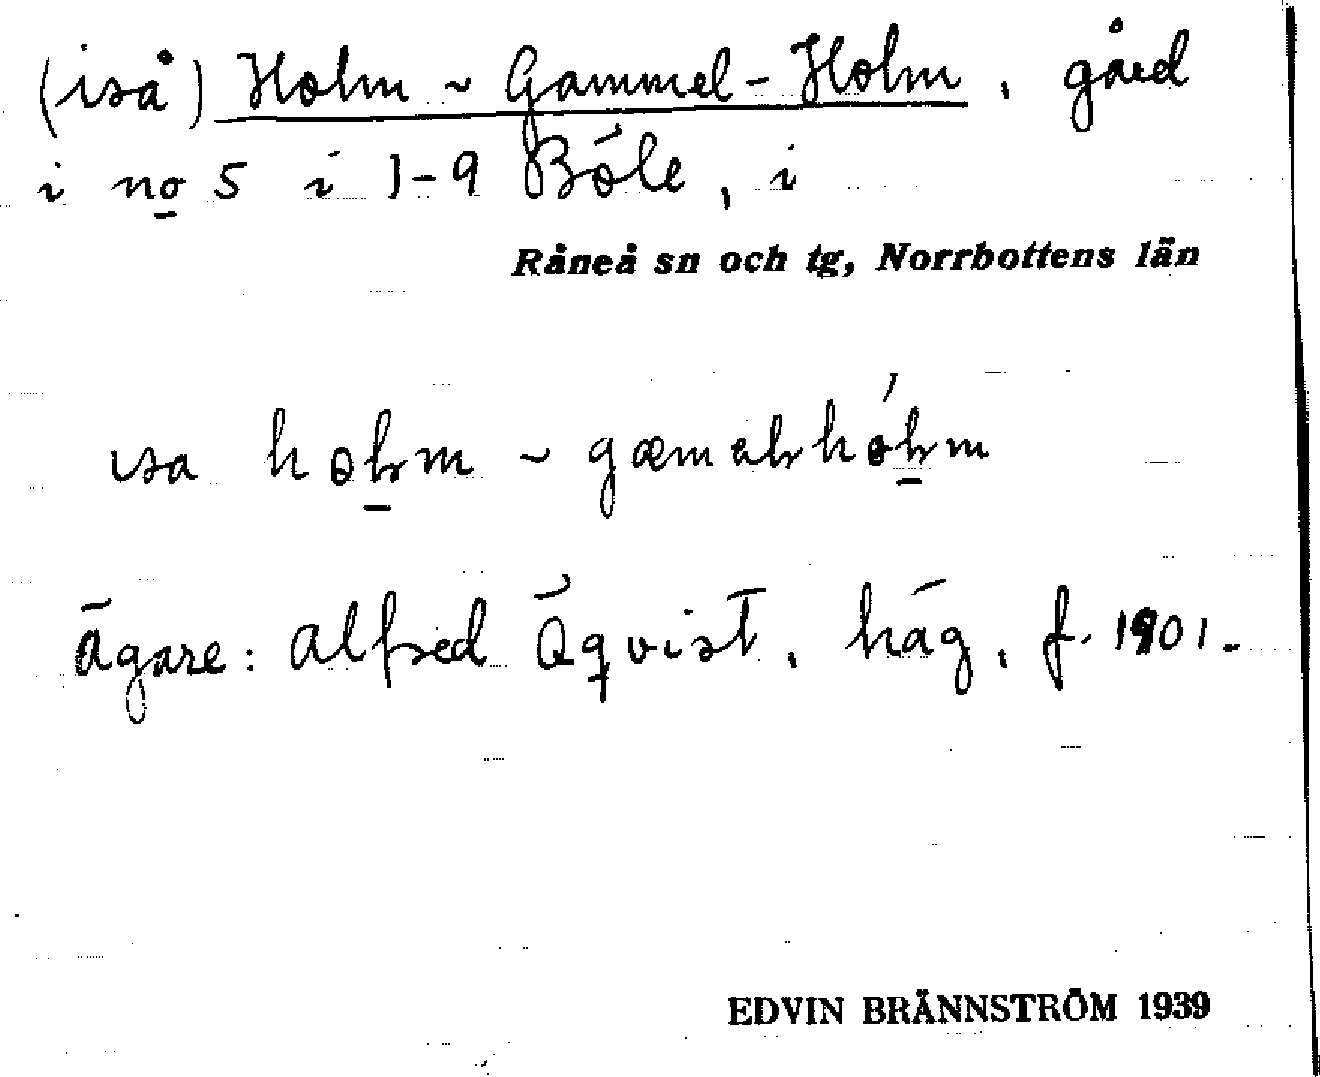 (iså) Holm ~ Gammel-Holm, gård
i no 5 i 1-9 Böle, i
Råneå sn och tg, Norrbottens län
ägare: Alfred Öqvist, häg, f. 1901.
EDVIN BRÄNNSTRÖM 1939